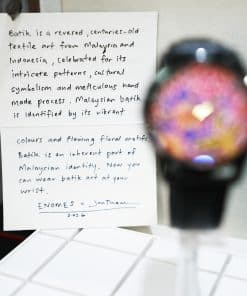 Batik is a revered, centuries-old
textile art from Malaysia and
Indonesia, celebrated for its
intricate patterns, cultural
symbolism and meticulous hand
made process. Malaysian batik
is identified by its vibrant
colours and flowing floral motifs.
Batik is an inherent part of
Malaysian identity. Now you
can wear batik art at your
wrist.
ENOMES